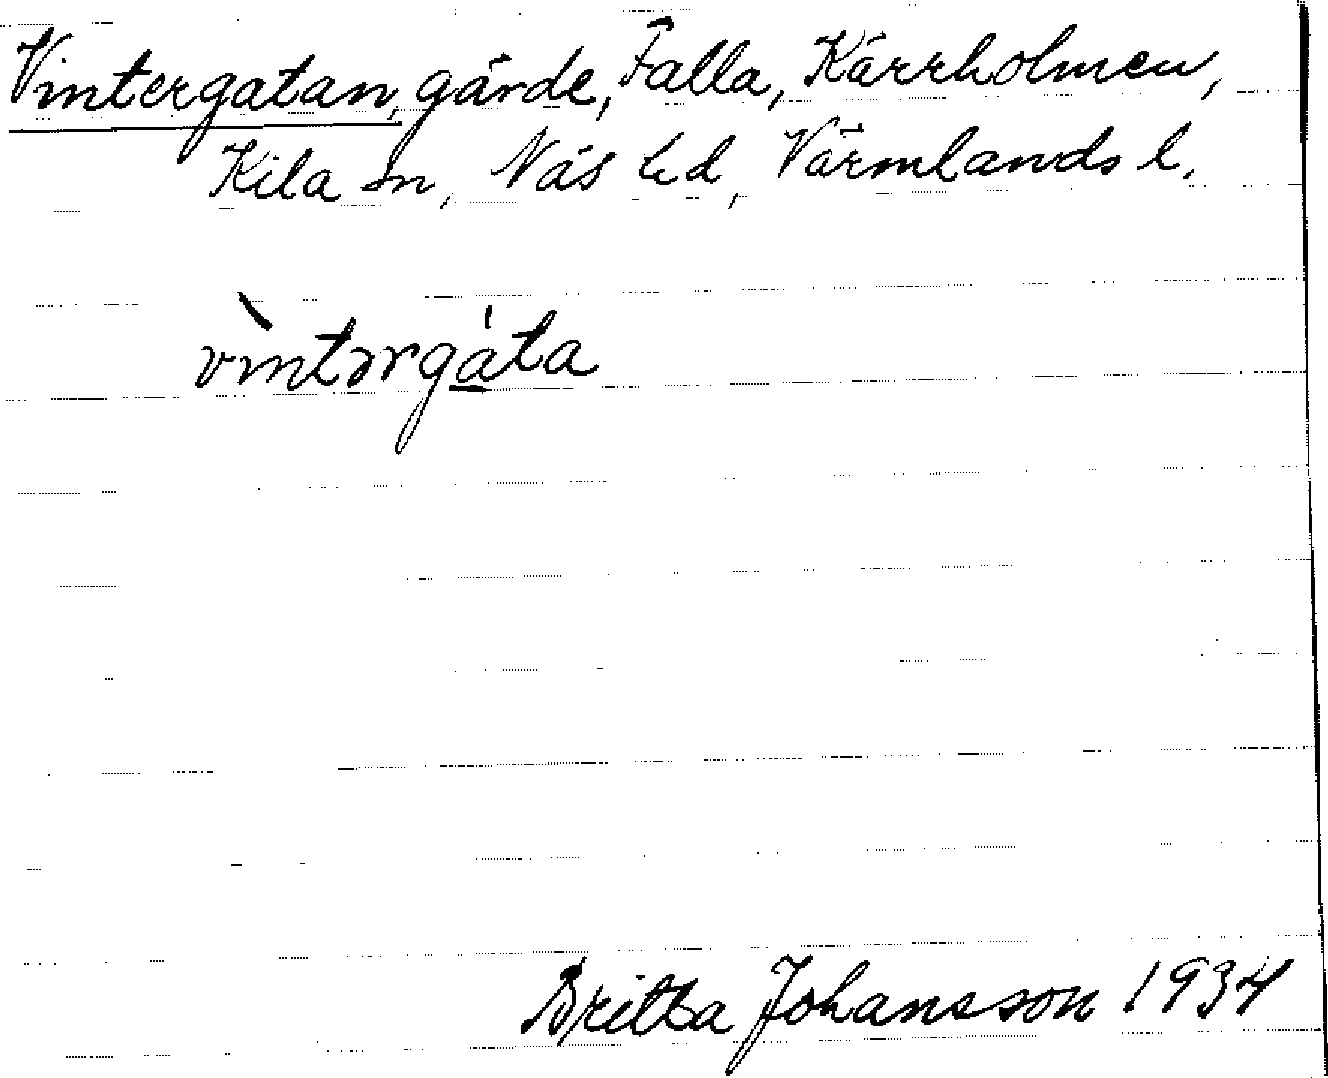 Vintergatan, gärde, Falla, Kärrholmen,
Kila sn, Näs hd, Värmlands l.
vìntərgáta
Britta Johansson 1934